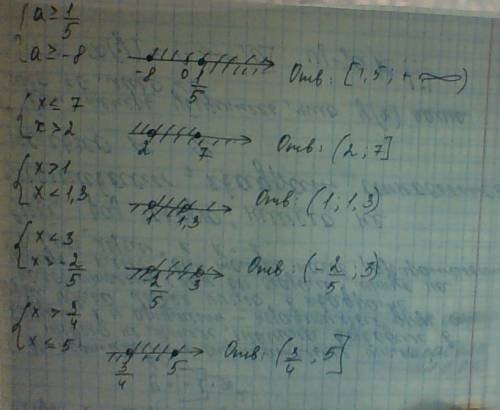 { a ≥ 1/5
{ a ≥ -8
-8 0 1/5 Отв: [1,5 ; +∞)
{ x ≤ 7
{ x > 2
2 7 Отв: (2 ; 7]
{ x > 1
{ x < 1,3
1 1,3 Отв: (1 ; 1,3)
{ x < 3
{ x > -2/5
-2/5 3 Отв: (-2/5 ; 3)
{ x > 3/4
{ x ≤ 5
3/4 5 Отв: (3/4 ; 5]